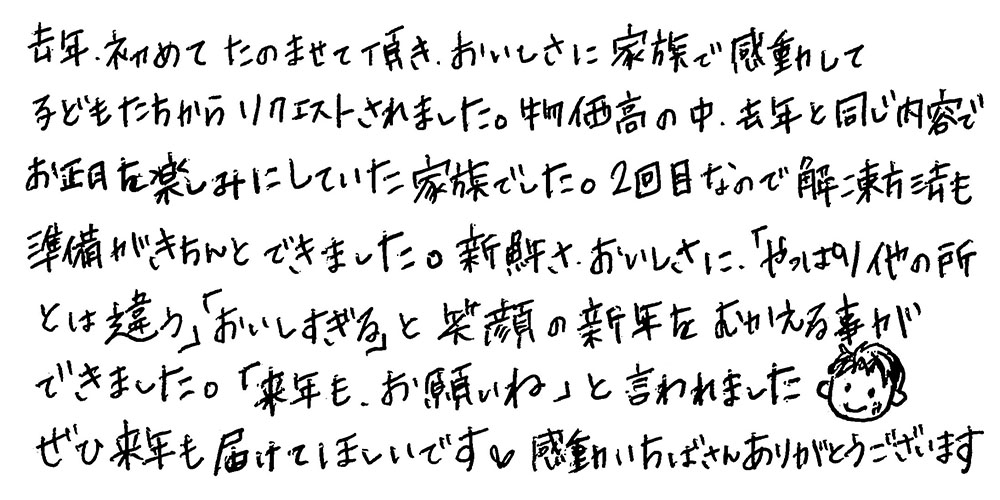 去年、初めてたのませて頂き、おいしさに家族で感動して
子どもたちからリクエストされました。物価高の中、去年と同じ内容で
お正月を楽しみにしていた家族でした。2回目なので解凍方法も
準備がきちんとできました。新鮮さ、おいしさに、「やっぱり他の所
とは違う」「おいしすぎる」と笑顔の新年をむかえる事が
できました。「来年も、お願いね」と言われました
ぜひ来年も届けてほしいです♡感動いちばさんありがとうございます